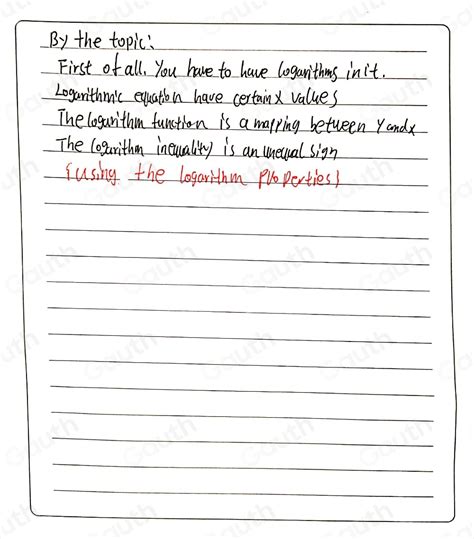 By the topic:
First of all. You have to have logarithms in it.
Logarithmic equation have certain x values
The logarithm function is a mapping between Y and x
The logarithm inequality is an unequal sign
{using the logarithm properties}
Gauth